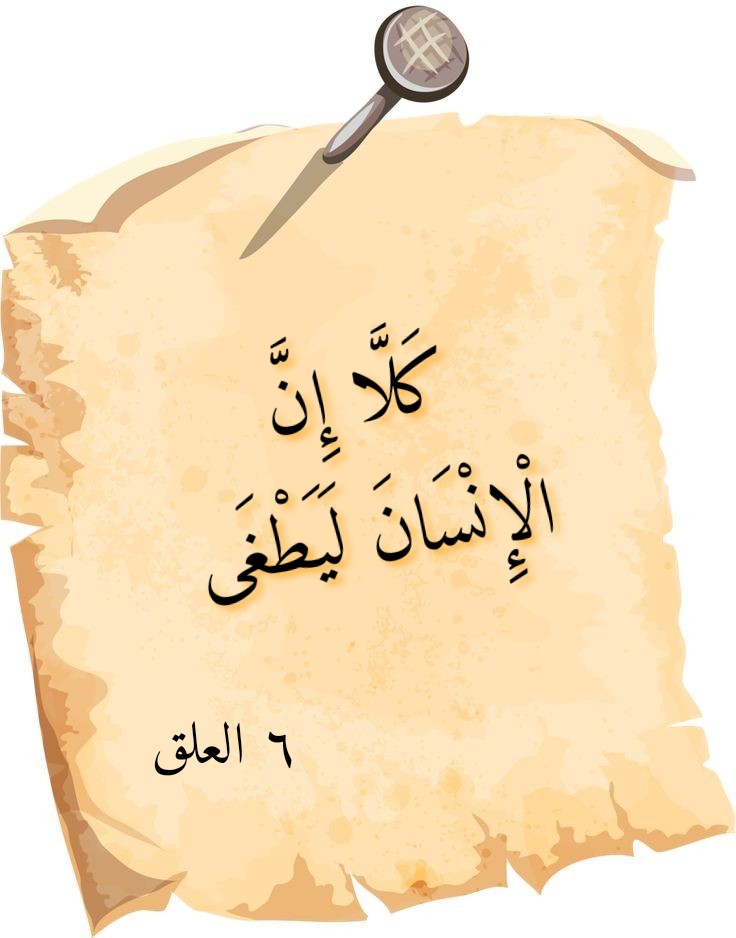 كَلَّا إِنَّ
الْإِنْسَانَ لَيَطْغَى
٦ العلق